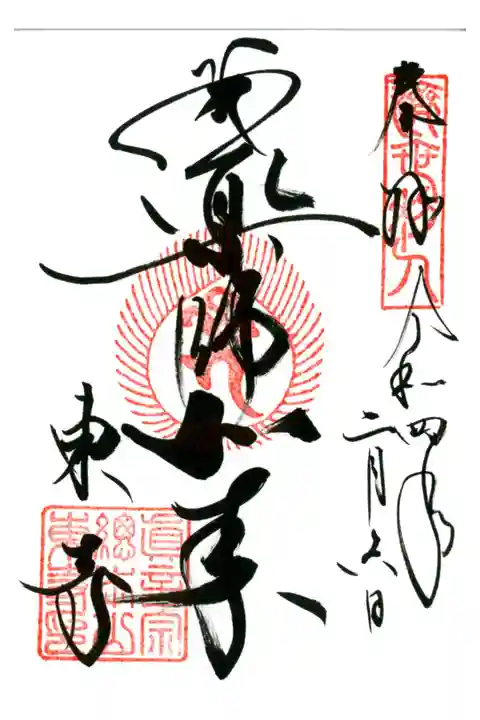 奉拝 令和四年
二月六日
薬師如来
東寺
眞言宗
總本山